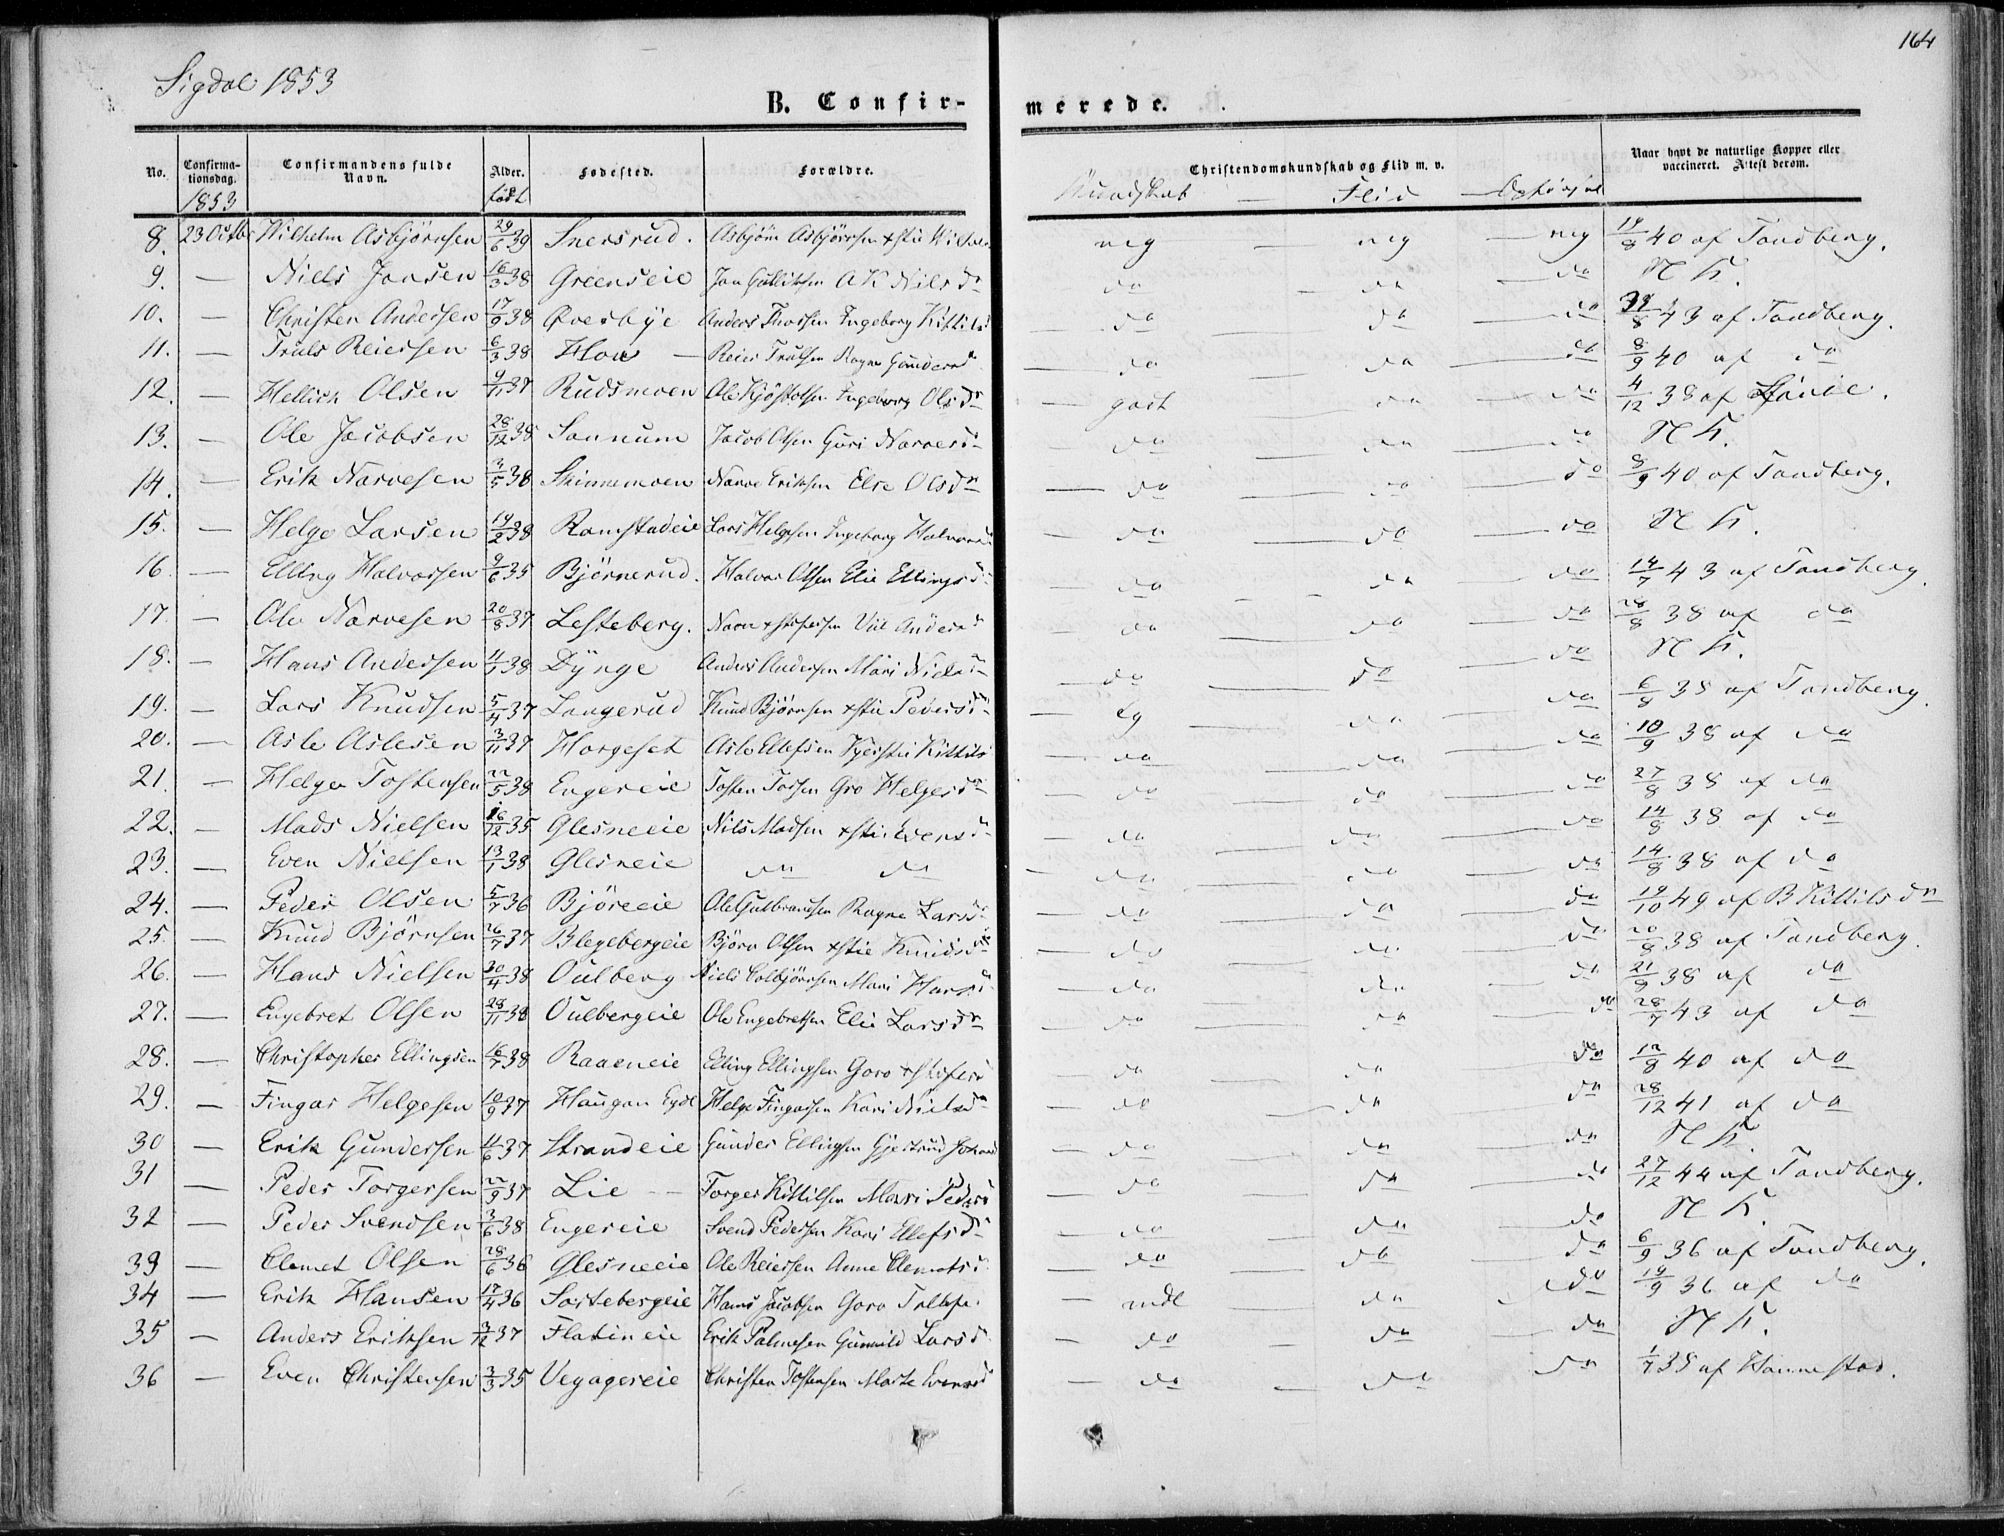 164
Sigdal 1853
B. Confirmerede.
No. Confirmationsdag. Confirmandens fulde Navn. Alder. Fødested. Forældre. Christendomskundskab og Flid m. v. Naar havt de naturlige Kopper eller vaccineret. Attest derom.
1853 født Kundskab — Flid —
8. 23 Octb Wilhelm Asbjörnsen 29/6 39 Snersrud. Asbjörn Asbjörnsen mg — mg — mg 14/8 40 af Tandberg.
9. — Niels Jansen 16/3 38 Greenseie Jan Gulliksen A K Nils dr do — do — do N K.
10. — Christen Andersen 17/9 38 Øvesbye Anders Thorsen Ingeborg Kittils — do do — do /8 43 af Tandberg.
11. — Truls Reiersen 6/3 38 Hove — Reier Trulsen Ragne Gunders d — do — do — do 8/9 40 af do
12. — Hellick Olsen 9/11 37 Rudsmoen Ole Kjöstolsen Ingeborg Olsdr — godt — do — do 4/12 38 af
13. — Ole Jacobsen 28/12 38 Sonnum Jacob Olsen Guri Narvesd — do — do — do N K.
14. — Erik Narvesen 3/5 38 Skinnemoen Narve Eriksen Else Olsdr — do — do — do 8/9 40 af Tandberg.
15. — Helge Larsen 14/2 38 Ramstadeie Lars Helgesen Ingeborg Halvors — do — do — do N K.
16. — Elling Halvorsen 9/6 35 Björnerud. Halvor Olsen Elie Ellings d — do — do — do 14/7 43 af Tandberg.
17. — Ole Narvesen 20/8 37 Lesteberg. Narve — do — do — do 28/8 38 af do
18. — Hans Andersen 11/1 38 Dynge Anders Andersen Mari Niels d — do — do — do N K.
19. — Lars Knudsen 5/4 37 Langerud Knud Björnsen xstie Peders d — Eg — do — do 6/8 38 af Tandberg.
20. — Asle Aslesen 3/11 37 Horgeset Asle Ellefsen Kjersti Kittils — do — do — do 10/9 38 af do
21. — Helge Tostensen 22/5 38 Engereie Tosten Gro Helges dr — do — do — do 27/8 38 af do
22. — Mads Nielsen 16/12 35 Glesneeie Nils Madsen xstie Evens d — do — do — do 14/8 38 af do
23. — Even Nielsen 13/1 38 Glesneie do do — do — do — do 14/8 38 af do
24. — Peder Olsen 5/7 36 Björeeie Ole Gulbrandsen Ragne Larsd — do — do — do 19/10 49 af B Kittils dr
25. — Knud Björnsen 26/7 37 Blegebergeie Björn Olsen xstie Knuds dr — do — do — do 20/8 38 af Tandberg.
26. — Hans Nielsen 30/4 38 Oulberg Niels Colbjörnsen Mari Hans d — do — do — do 21/9 38 af do
27. — Engebret Olsen 28/11 38 Oulbergeie Ole Engebretsen Elie Larsdr — do — do — do 28/7 43 af do
28. — Christopher Ellingsen 16/7 38 Raaeneie Elling Ellingsen Goro — do — do — do 12/8 40 af do
29. — Fingar Helgesen 10/9 37 Haugan Helge Fingarsen Kari Nielsdr — do — do — do 28/12 41 af do
30 — Erik Gundersen 11/6 37 Strandeie Gunder Ellingsen Gjertrud — do — do — do N K
31 — Peder Torgersen 22/9 37 Lie — Torger Kittilsen Mari Peders — do — do — do 27/12 44 af Tandberg.
32 — Peder Svendsen 3/6 38 Engereie Svend Pedersen Kari Ellefs d — do — do — do N K.
33 — Clemet Olsen 28/6 36 Glesneeie Ole Reiersen Anne Clemets d — do — do — do 6/9 36 af Tandberg.
34 — Erik Hansen 17/4 36 Sortebergeie Hans Jacobsen Goro — mdl — do — do 19/9 36 af do
35 — Anders Eriksen 3/12 37 Flatineie Erik Palmesen Gunnild Lars d — do — do — do N K.
36 — Even Christensen 3/3 35 Vegagereie Christen Tostensen Marte Evens d — do — do — do 1/7 38 af Hannestad.